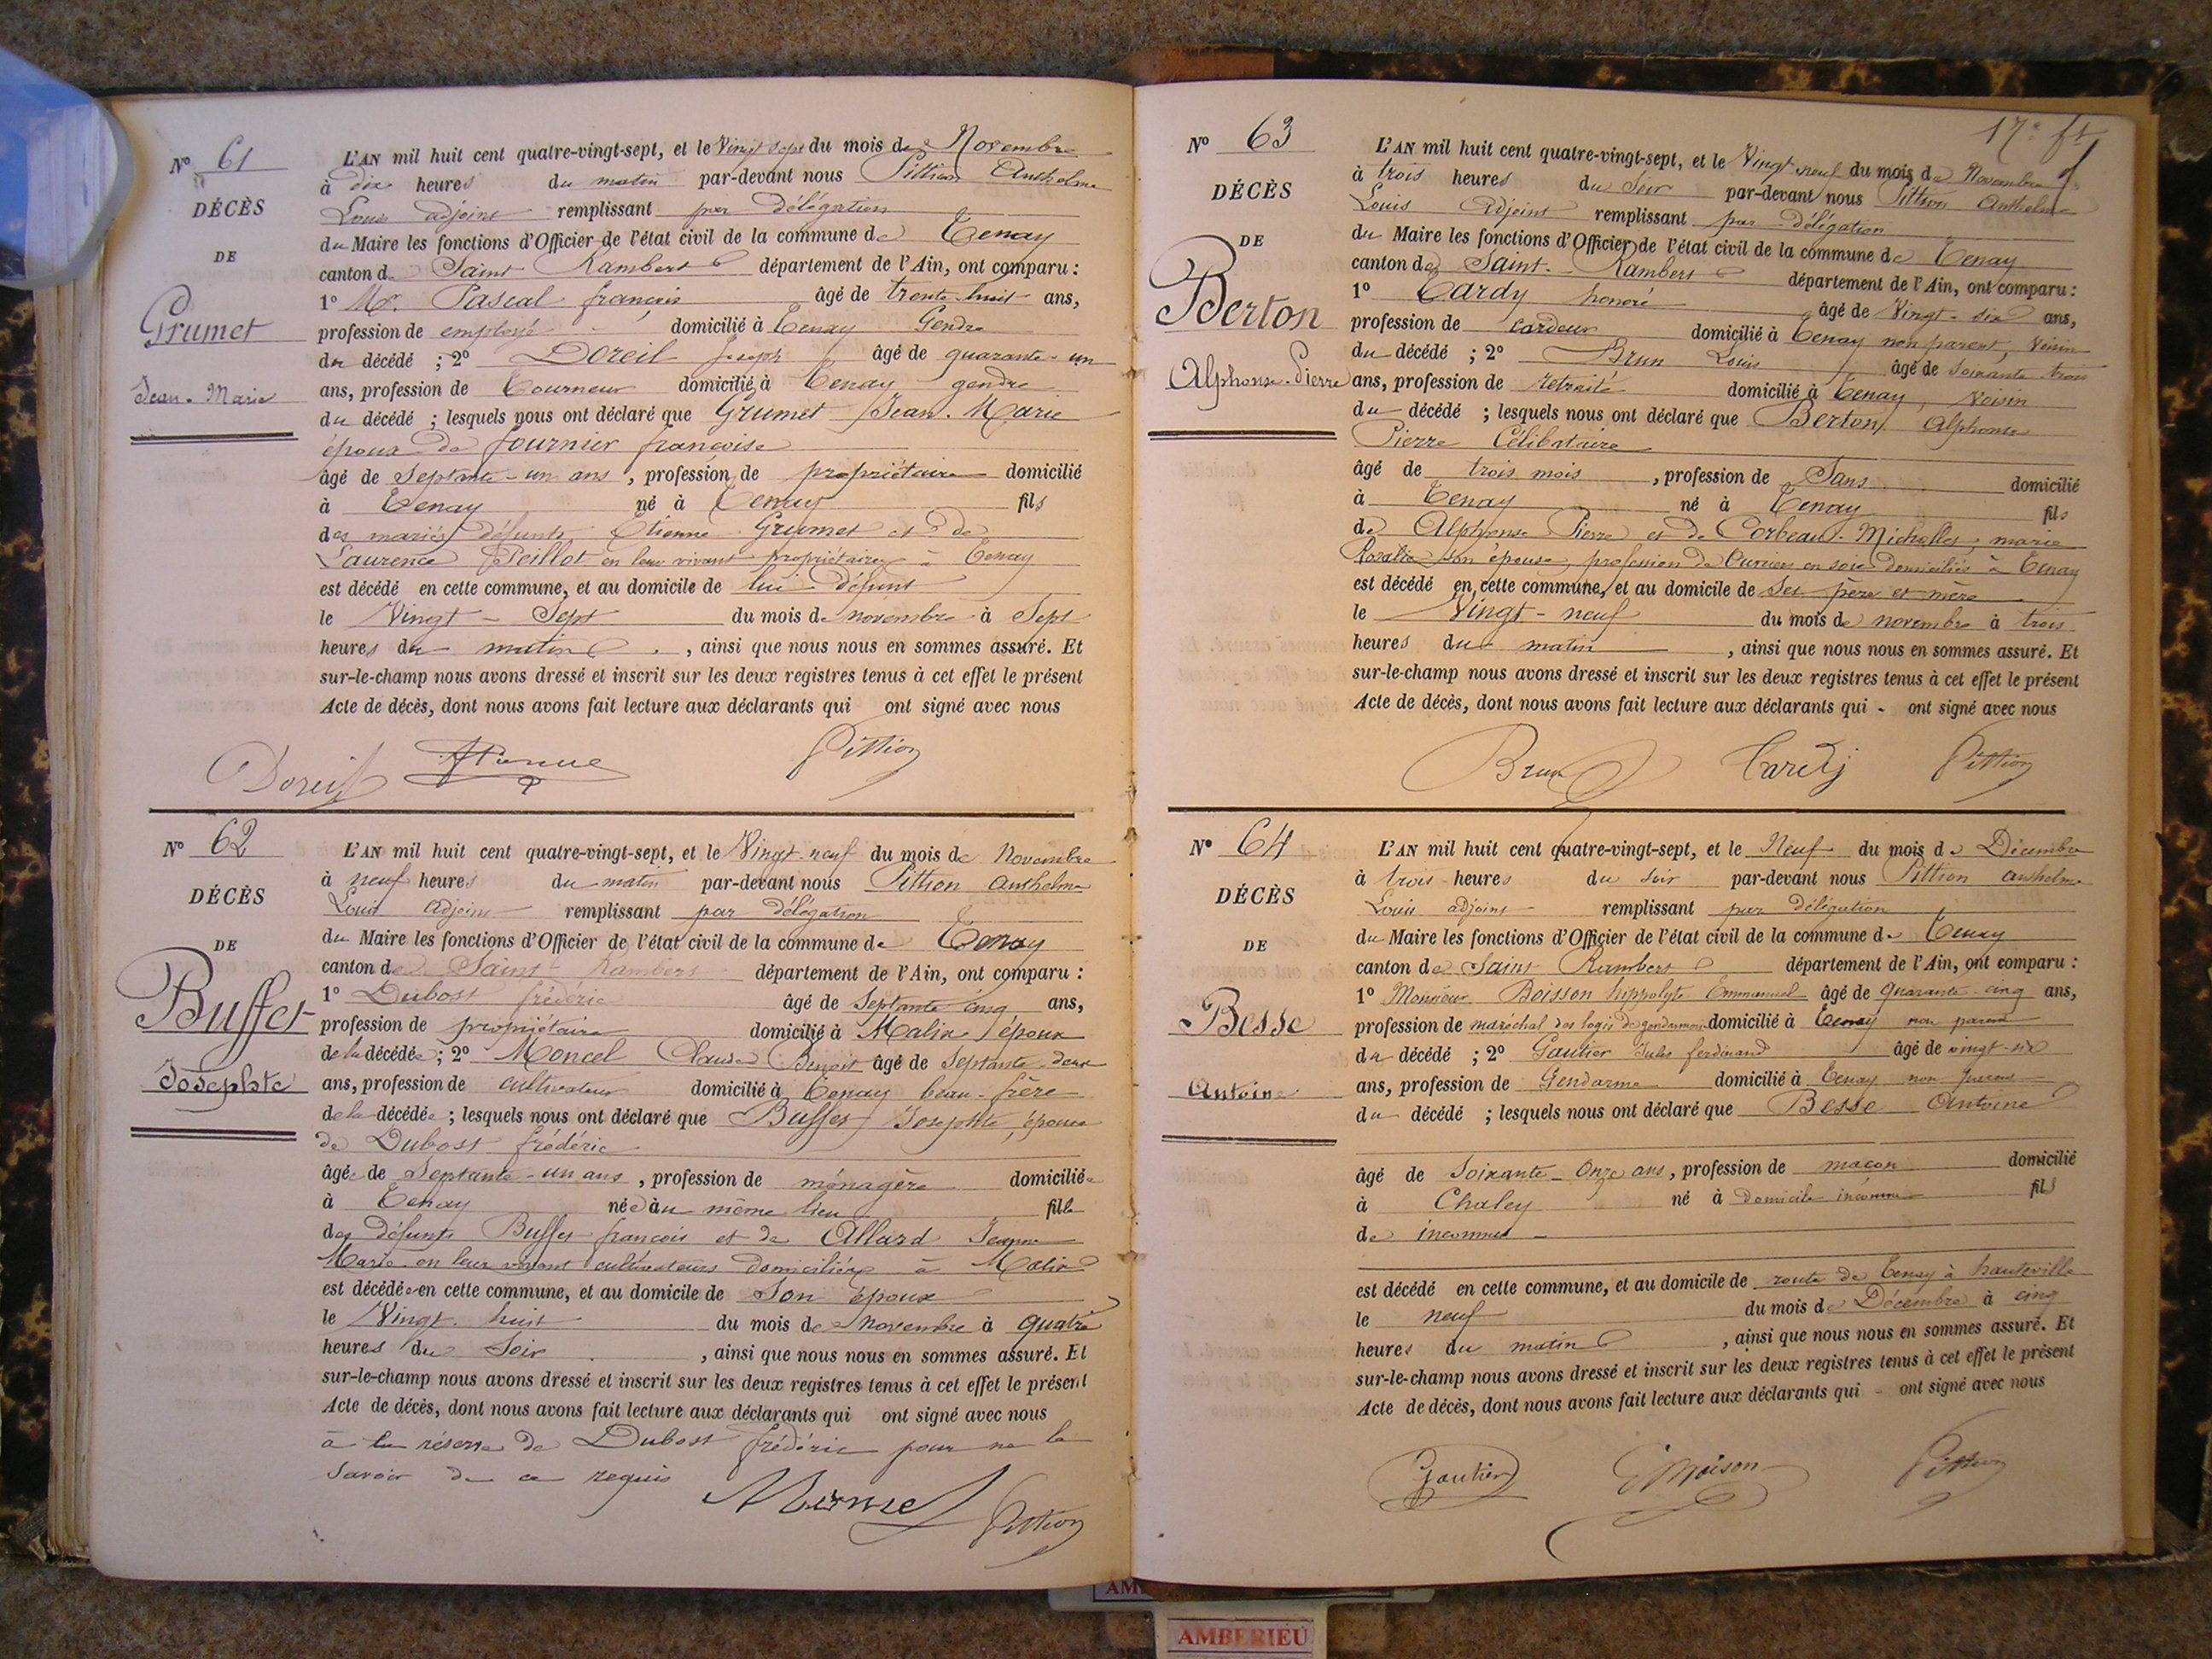 Nº 61
DÉCÈS
DE
Grumet
Jean-Marie
L'AN mil huit cent quatre-vingt-sept, et le Vingt sept du mois de Novembre
à dix heures du matin par-devant nous Pittion Anthelme
Louis adjoint remplissant par délégation
du Maire les fonctions d'Officier de l'état civil de la commune de Tenay
canton de Saint Rambert département de l'Ain, ont comparu :
1º Mr. Pascal françois âgé de trente-huit ans,
profession de employé domicilié à Tenay Gendre
du décédé ; 2º Doreil Joseph âgé de quarante-un
ans, profession de Tourneur domicilié à Tenay gendre
du décédé ; lesquels nous ont déclaré que Grumet Jean-Marie
époux de fournier françoise
âgé de Septante-un ans, profession de propriétaire domicilié
à Tenay né à Tenay fils
des mariés défunts Etienne Grumet et de
Laurence Peillot en leur vivant propriétaires à Tenay
est décédé en cette commune, et au domicile de lui défunt
le Vingt-Sept du mois de novembre à Sept
heures du matin, ainsi que nous nous en sommes assuré. Et
sur-le-champ nous avons dressé et inscrit sur les deux registres tenus à cet effet le présent
Acte de décès, dont nous avons fait lecture aux déclarants qui ont signé avec nous
Doreil Pittion
Nº 62
DÉCÈS
DE
Buffet
Josephte
L'AN mil huit cent quatre-vingt-sept, et le Vingt-neuf du mois de Novembre
à neuf heures du matin par-devant nous Pittion anthelme
Louis Adjoint remplissant par délégation
du Maire les fonctions d'Officier de l'état civil de la commune de Tenay
canton de Saint Rambert département de l'Ain, ont comparu :
1º Dubost frédéric âgé de Septante cinq ans,
profession de propriétaire domicilié à Malix époux
de la décédée ; 2º Moncel Claude Benoit âgé de Septante-deux
ans, profession de cultivateur domicilié à Tenay beau-frère
de la décédée ; lesquels nous ont déclaré que Buffet Josephte, épouse
de Dubost frédéric
âgée de Septante-un ans, profession de ménagère domiciliée
à Tenay née àu même lieu fille
des défunts Buffet françois et de Allard Jeanne
Marie en leur vivant cultivateurs domiciliés à Malix
est décédée en cette commune, et au domicile de Son époux
le Vingt-huit du mois de novembre à quatre
heures du Soir, ainsi que nous nous en sommes assuré. Et
sur-le-champ nous avons dressé et inscrit sur les deux registres tenus à cet effet le présent
Acte de décès, dont nous avons fait lecture aux déclarants qui ont signé avec nous
à la réserve de Dubost frédéric pour ne le
savoir de ce requis
Pittion
17e ft
Nº 63
DÉCÈS
DE
Berton
Alphonse-Pierre
L'AN mil huit cent quatre-vingt-sept, et le Vingt-neuf du mois de Novembre
à trois heures du Soir par-devant nous Pittion Anthelme
Louis Adjoint remplissant par délégation
du Maire les fonctions d'Officier de l'état civil de la commune de Tenay
canton de Saint-Rambert département de l'Ain, ont comparu :
1º Cardy honoré âgé de Vingt-six ans,
profession de cardeur domicilié à Tenay non parent, voisin
du décédé ; 2º Brun Louis âgé de Soixante-trois
ans, profession de retraité domicilié à Tenay, voisin
du décédé ; lesquels nous ont déclaré que Berton Alphonse
Pierre Célibataire
âgé de trois mois, profession de Sans domicilié
à Tenay né à Tenay fils
de Alphonse Pierre et de Corbeau-Michollet, marie
Rosalie son épouse, profession de Ouvriers en soie domiciliés à Tenay
est décédé en cette commune, et au domicile de ses père et mère
le Vingt-neuf du mois de novembre à trois
heures du matin, ainsi que nous nous en sommes assuré. Et
sur-le-champ nous avons dressé et inscrit sur les deux registres tenus à cet effet le présent
Acte de décès, dont nous avons fait lecture aux déclarants qui - ont signé avec nous
Brun Cardy Pittion
Nº 64
DÉCÈS
DE
Besse
Antoine
L'AN mil huit cent quatre-vingt-sept, et le Neuf du mois de Décembre
à trois heures du soir par-devant nous Pittion anthelme
Louis adjoint remplissant par délégation
du Maire les fonctions d'Officier de l'état civil de la commune de Tenay
canton de Saint Rambert département de l'Ain, ont comparu :
1º Monsieur Boisson hippolyte Emmanuel âgé de quarante-cinq ans,
profession de maréchal des logis de gendarmerie domicilié à Tenay non parent
du décédé ; 2º Gautier Jules ferdinand âgé de vingt-six
ans, profession de Gendarme domicilié à Tenay non parent
du décédé ; lesquels nous ont déclaré que Besse Antoine
âgé de Soixante-Onze ans, profession de maçon domicilié
à Chaley né à domicile inconnu fils
de inconnus
est décédé en cette commune, et au domicile de route de Tenay à hauteville
le neuf du mois de Décembre à cinq
heures du matin, ainsi que nous nous en sommes assuré. Et
sur-le-champ nous avons dressé et inscrit sur les deux registres tenus à cet effet le présent
Acte de décès, dont nous avons fait lecture aux déclarants qui - ont signé avec nous
Gautier Pittion
AMBERIEU